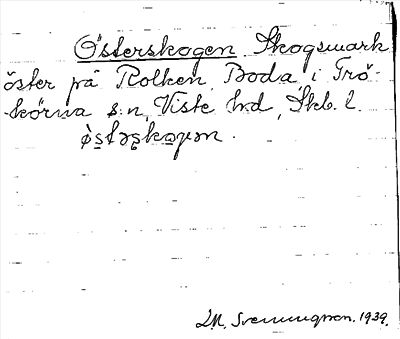 Österskogen, Skogsmark
öster på Rolken, Boda, i Trö-
-körna s:n, Viste hrd, Skb. l.
L.M. Svenungsson. 1939.